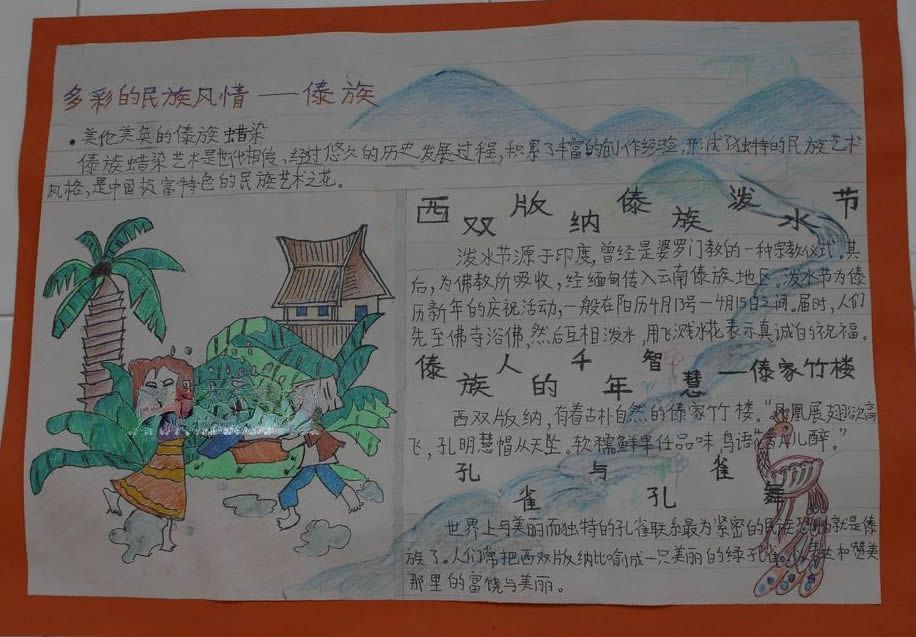 多彩的民族风情 — 傣族
• 美伦美奂的傣族蜡染
傣族蜡染艺术是世代相传、经过悠久的历史发展过程,积累了丰富的创作经验,形成了独特的民族艺术
风格,是中国极富特色的民族艺术之花。
西双版纳傣族泼水节
泼水节源于印度,曾经是婆罗门教的一种宗教仪式。其
后,为佛教所吸收,经缅甸传入云南傣族地区。泼水节为傣
历新年的庆祝活动,一般在阳历4月13号—4月15日之间。届时,人们
先至佛寺浴佛,然后互相泼水,用飞溅水花表示真诚的祝福。
傣族人的千年智慧—傣家竹楼
西双版纳,有着古朴自然的傣家竹楼。“凤凰展翅欲高
飞,孔明慧帽从天坠。软糯鲜果任品味,鸟语花香人醉。”
孔雀与孔雀舞
世界上与美丽而独特的孔雀联系最为紧密的民族就是傣
族了。人们常把西双版纳比喻成一只美丽的绿孔雀。和赞美
那里的富饶与美丽。